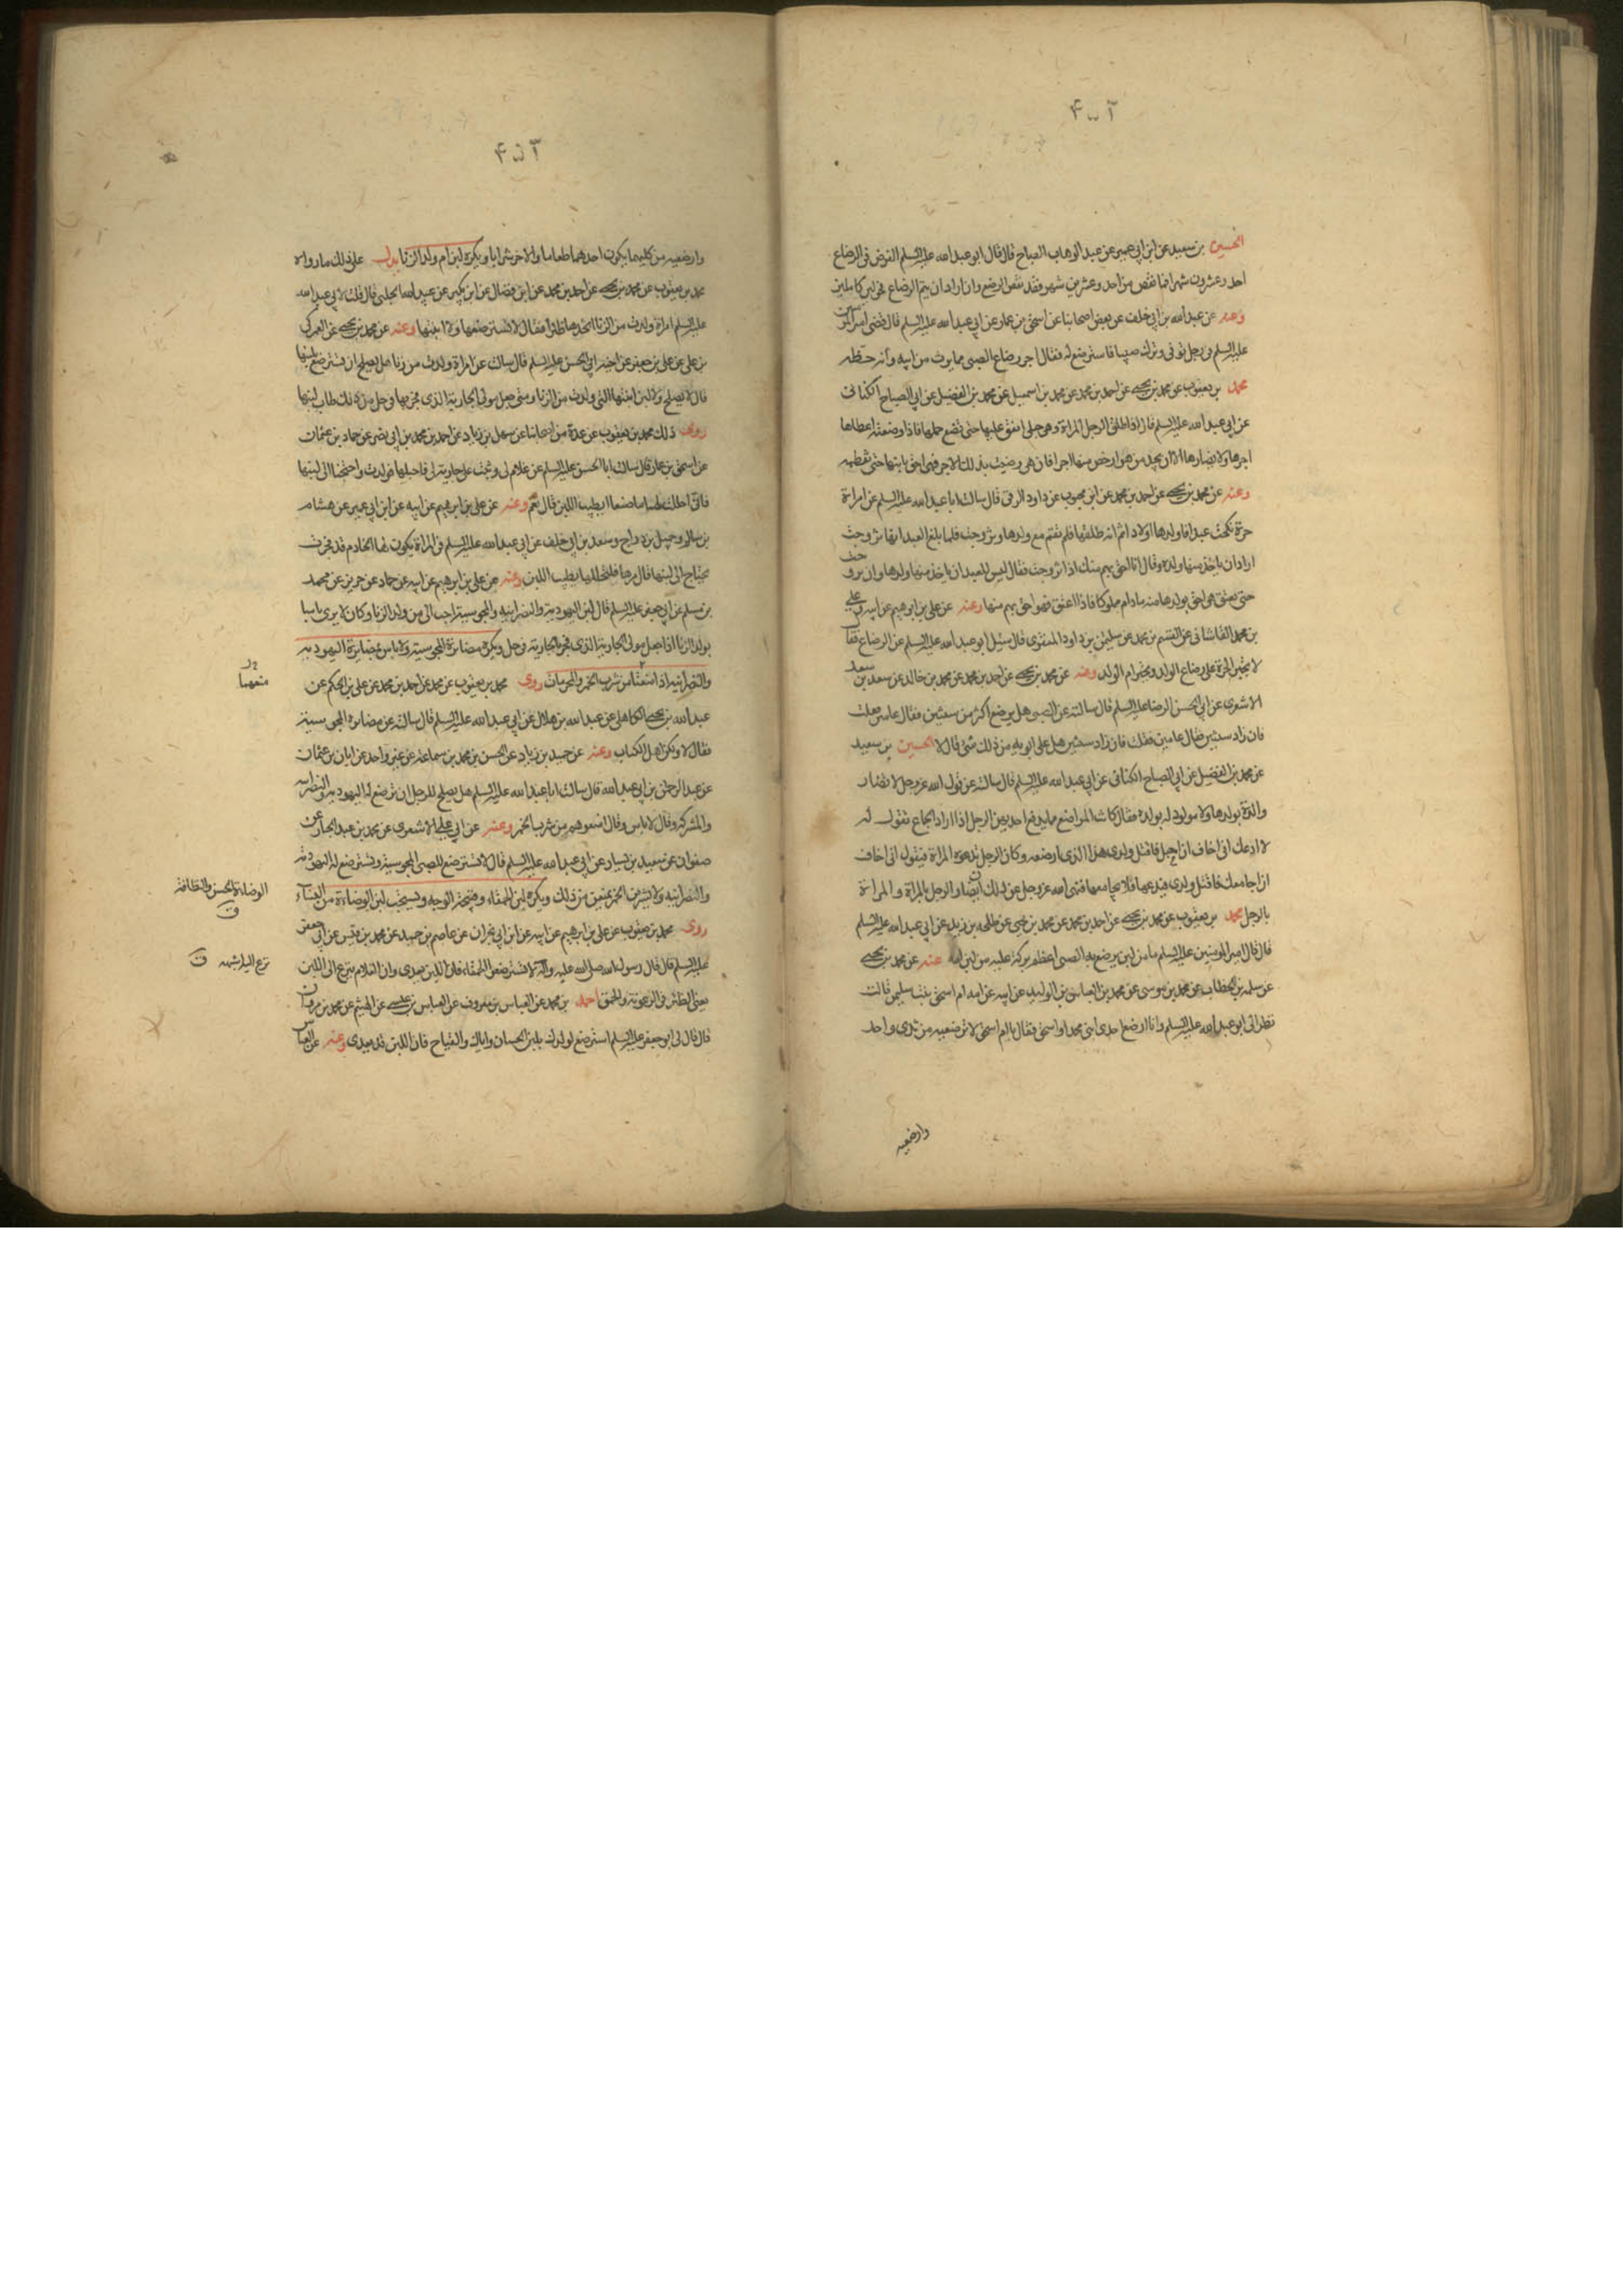 ۴۵۲
الحسين بن سعيد عن ابن ابي عمير عن عبد الوهاب الصباح قال قال ابو عبد الله عليه السلم الفرض فى الرضاع
احد وعشرون شهرا فما نقص من احد وعشرين شهر فقد نقص المرضع وان اراد ان يتم الرضاع فحولين كاملين
وعنه عن عبد الله بن ابي خلف عن بعض اصحابنا عن اسحق بن عمار عن ابي عبد الله عليه السلم قال قضى امير المؤ
عليه السلم فى رجل توفى وترك صبيا فاسترضع له فقال اجر رضاع الصبي مما يرث من ابيه وأنه حظه
محمد بن يعقوب عن محمد بن يحيى عن احمد بن محمد عن محمد بن اسمعيل عن محمد بن الفضيل عن ابي الصباح الكنانى
عن ابي عبد الله عليه السلم قال اذا طلق الرجل المراة وهى حبلى انفق عليها حتى تضع حملها فاذا وضعته اعطاها
اجرها ولا يضارها الا ان يجد من هو ارخص منها اجرا فان هى رضيت بذلك الاجر فهى احق بابنها حتى تفطمه
وعنه عن محمد بن يحيى عن احمد بن محمد عن ابن محبوب عن داود الرقى قال سالت ابا عبد الله عليه السلم عن امراة
حرة نكحت عبدا فاولدها اولادا ثم انه طلقها فلم تقم مع ولدها وتزوجت فلما بلغ العبد انها تزوجت
اراد ان ياخذ منها ولده وقال انا احق بهم منك اذا تزوجت فقال ليس للعبد ان ياخذ منها ولدها وان تزوجت
حتى يعتق هى احق بولدها منه ما دام مملوكا فاذا اعتق فهو احق بهم منها وعنه عن على بن ابرهيم عن ابيه وعلى
بن محمد القاشانى عن القسم بن محمد عن سليمن بن داود المنقرى قال سئل ابو عبد الله عليه السلم عن الرضاع فقال
لا تجبر الحرة على رضاع الولد وتجبر ام الولد وعنه عن محمد بن يحيى عن احمد بن محمد عن محمد بن خالد عن سعد بن سعد
الاشعرى عن ابي الحسن الرضا عليه السلم قال سالته عن الصبى هل يرضع اكثر من سنتين فقال عامين قلت
فان زاد سنتين فقال عامين فقلت فان زاد سنتين هل على ابويه من ذلك شئ قال لا الحسين بن سعيد
عن محمد بن الفضيل عن ابي الصباح الكنانى عن ابي عبد الله عليه السلم قال سالته عن قول الله عز وجل لا تضار
والدة بولدها ولا مولود له بولده فقال كانت المراضع مما يدفع احديهن الرجل اذا اراد الجماع تقول له
لا ادعك انى اخاف ان احبل فاقتل ولدى هذا الذى ارضعه وكان الرجل تدعوه المراة فيقول انى اخاف
ان اجامعك فاقتل ولدى فيدعها فلا يجامعها فنهى الله عز وجل عن ذلك ان يضار الرجل بالمراة والمراة
بالرجل محمد بن يعقوب عن محمد بن يحيى عن احمد بن محمد عن محمد بن يحيى عن طلحه بن زيد عن ابي عبد الله عليه السلم
قال قال امير المؤمنين عليه السلم ما من لبن يرضع به الصبى اعظم بركة عليه من لبن امه عنه عن محمد بن يحيى
عن سلمه بن الخطاب عن محمد بن موسى عن محمد بن العباس بن الوليد عن ابيه عن امه ام اسحق بنت سليمن قالت
نظر الى ابو عبد الله عليه السلم وانا ارضع احدى ابنى محمد او اسحق فقال يا ام اسحق لا ترضعيه من ثدى واحد
وارضعيه
۴۵۳
وارضعيه من كليهما يكون احدهما طعاما والاخر شرابا ويكره لبن ام ولد الزنا يدل على ذلك ما رواه
محمد بن يعقوب عن محمد بن يحيى عن احمد بن محمد عن ابن فضال عن ابن بكير عن عبيد الله الحلبى قال قلت لابى عبد الله
عليه السلم امراة ولدت من الزنا اتخذها ظئرا فقال لا تسترضعها ولا ابنتها وعنه عن محمد بن يحيى عن العمركى
بن على عن على بن جعفر عن اخيه ابي الحسن عليه السلم قال سالت عن امراة ولدت من زنا هل يصلح ان تسترضع بلبنها
قال لا يصلح ولا لبن ابنتها التى ولدت من الزنا ومتى جعل مولى الجارية الذى فجر بها وحل من ذلك طاب لبنها
روى ذلك محمد بن يعقوب عن عدة من اصحابنا عن سهل بن زياد عن احمد بن محمد بن ابي نصر عن حماد بن عثمان
عن اسحق بن عمار قال سالت ابا الحسن عليه السلم عن غلام لى وثب على جارية لى فاحبلها فولدت واحتجنا الى لبنها
فانى احللت لهما ما صنعا ايطيب اللبن قال نعم وعنه عن على بن ابرهيم عن ابيه عن ابن ابي عمير عن هشام
بن سالم وجميل بن دراج وسعد بن ابي خلف عن ابي عبد الله عليه السلم فى المراة يكون لها الخادم قد فجرت
تحتاج الى لبنها قال مرها فلتحللها يطيب اللبن وعنه عن على بن ابرهيم عن ابيه عن حماد عن حريز عن محمد
بن مسلم عن ابي جعفر عليه السلم قال لبن اليهودية والنصرانية والمجوسية احب الى من ولد الزنا وكان لا يرى باسا
بولد الزنا اذا جعل مولى الجارية الذى فجر بالجارية فى حل ويكره مضائرة المجوسية ولا باس بمضائرة اليهودية
والنصرانية اذا منعتا من شرب الخمر والمحرمات روى محمد بن يعقوب عن محمد عن احمد بن محمد عن على بن الحكم عن
عبد الله بن يحيى الكاهلى عن عبد الله بن هلال عن ابي عبد الله عليه السلم قال سالته عن مضائرة المجوسية
فقال لا ولكن اهل الكتاب وعنه عن حميد بن زياد عن الحسن بن محمد بن سماعة عن غير واحد عن ابان بن عثمان
عن عبد الرحمن بن ابي عبد الله قال سالت ابا عبد الله عليه السلم هل يصلح للرجل ان ترضع له اليهودية والنصرانية
والمشركة وقال لا باس وقال امنعوهم من شرب الخمر وعنه عن ابي على الاشعرى عن محمد بن عبد الجبار عن
صفوان عن سعيد بن يسار عن ابي عبد الله عليه السلم قال لا تسترضع للصبى المجوسية وتسترضع له اليهودية
والنصرانية ولا يشربن الخمر يمنعن من ذلك ويكره لبن الحمقاء وقبيحة الوجه ويستحب لبن الوضاءة من النساء
روى محمد بن يعقوب عن على بن ابرهيم عن ابيه عن ابن ابي نجران عن عاصم بن حميد عن محمد بن قيس عن ابي جعفر
عليه السلم قال قال رسول الله صلى الله عليه وآله لا تسترضعوا الحمقاء فان اللبن يعدى وان الغلام ينزع الى اللبن
يعنى الظئر فى الرعونة والحمق احمد بن محمد عن العباس بن معروف عن العباس بن عيسى عن الهيثم عن محمد بن مروان
قال قال لى ابو جعفر عليه السلم استرضع لولدك بلبن الحسان واياك والقباح فان اللبن قد يعدى وعنه عن العباس
منعهما
الوضاءة الحسن والنظافة
ق
نزع اليه اشبهه ق